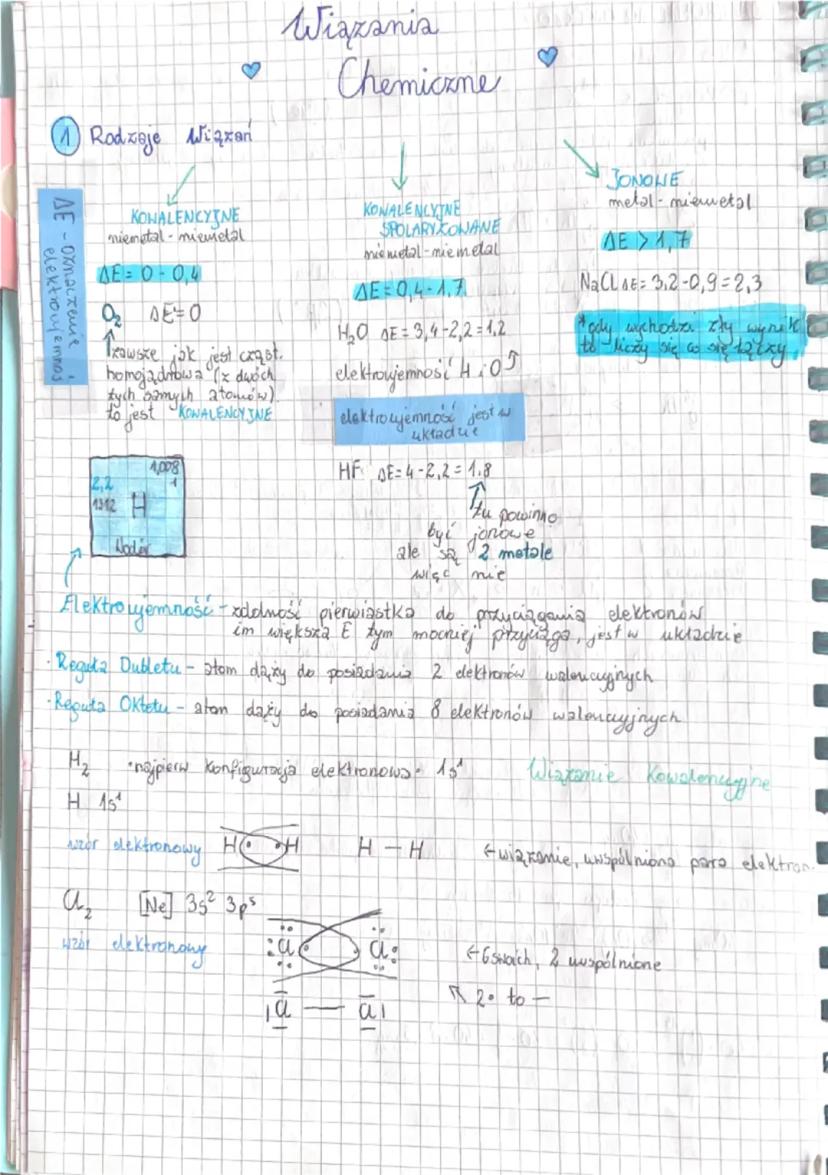 Wiązania
Chemiczne
1 Rodzaje Wiązań
ΔE - oznaczenie
elektroujemnoś
KOWALENCYJNE
niemetal - niemetal
ΔE = 0 - 0,4
O₂ ΔE = 0
zawsze jak jest cząst.
homojądrowa (z dwóch
tych samych atomów)
to jest KOWALENCYJNE
KOWALENCYJNE
SPOLARYZOWANE
niemetal - niemetal
ΔE = 0,4 - 1,7
H₂O ΔE = 3,4 - 2,2 = 1,2
elektroujemność H i O
elektroujemność jest w
układzie
HF ΔE = 4 - 2,2 = 1,8
tu powinno
być jonowe
ale są 2 metale
więc nie
JONOWE
metal - niemetal
ΔE > 1,7
NaCl ΔE = 3,2 - 0,9 = 2,3
*gdy wychodzi zły wynik
to liczy się co się łączy
1,008
2,2 1
1312 H
Wodór
Elektroujemność - zdolność pierwiastka do przyciągania elektronów
im większa E tym mocniej przyciąga, jest w układzie
· Reguła Dubletu - atom dąży do posiadania 2 elektronów walencyjnych
· Reguła Oktetu - atom dąży do posiadania 8 elektronów walencyjnych
H₂ •najpierw konfiguracja elektronowa• 1s¹ Wiązanie Kowalencyjne
H 1s¹
wzór elektronowy H • • H H — H ← wiązanie, uwspólniona para elektron.
Cl₂ [Ne] 3s² 3p⁵
wzór elektronowy :Cl • • Cl: ← 6 swoich, 2 uwspólnione
|Cl — Cl| ↖ 2• to —